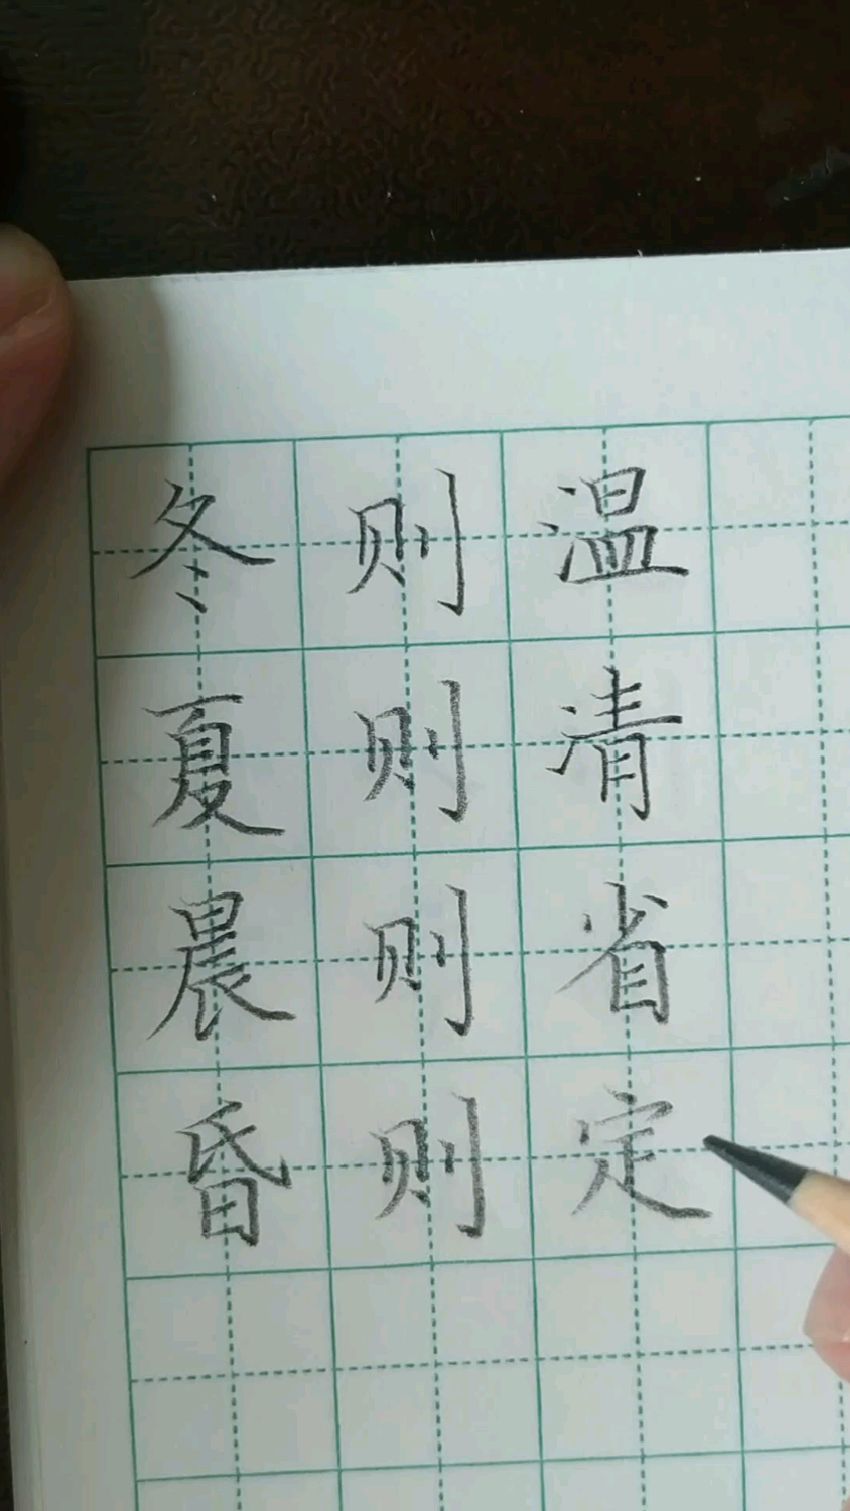 冬则温
夏则凊
晨则省
昏则定